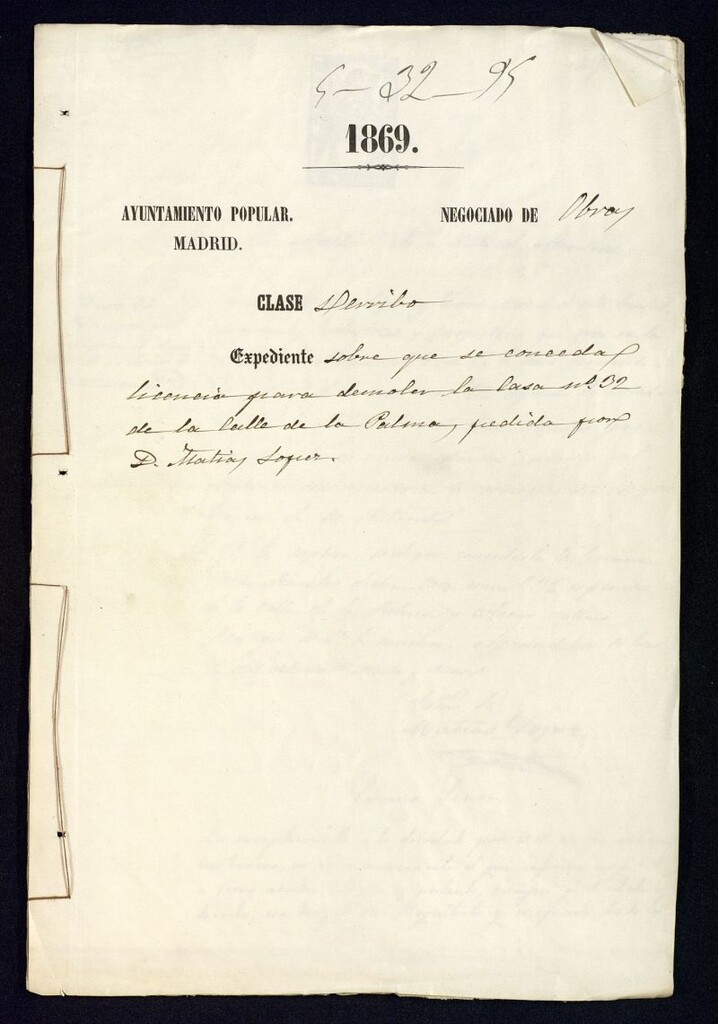 5-32-95
1869.
AYUNTAMIENTO POPULAR. NEGOCIADO DE Obras
MADRID.
CLASE Derribo
Expediente sobre que se conceda
licencia para demoler la Casa nº. 32
de la Calle de la Palma, pedida por
D. Matias Lopez.